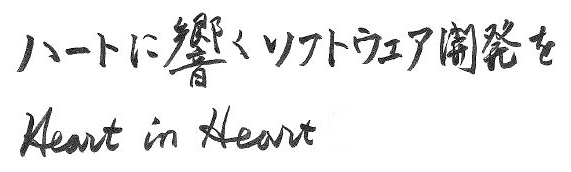 ハートに響くソフトウェア開発を
Heart in Heart